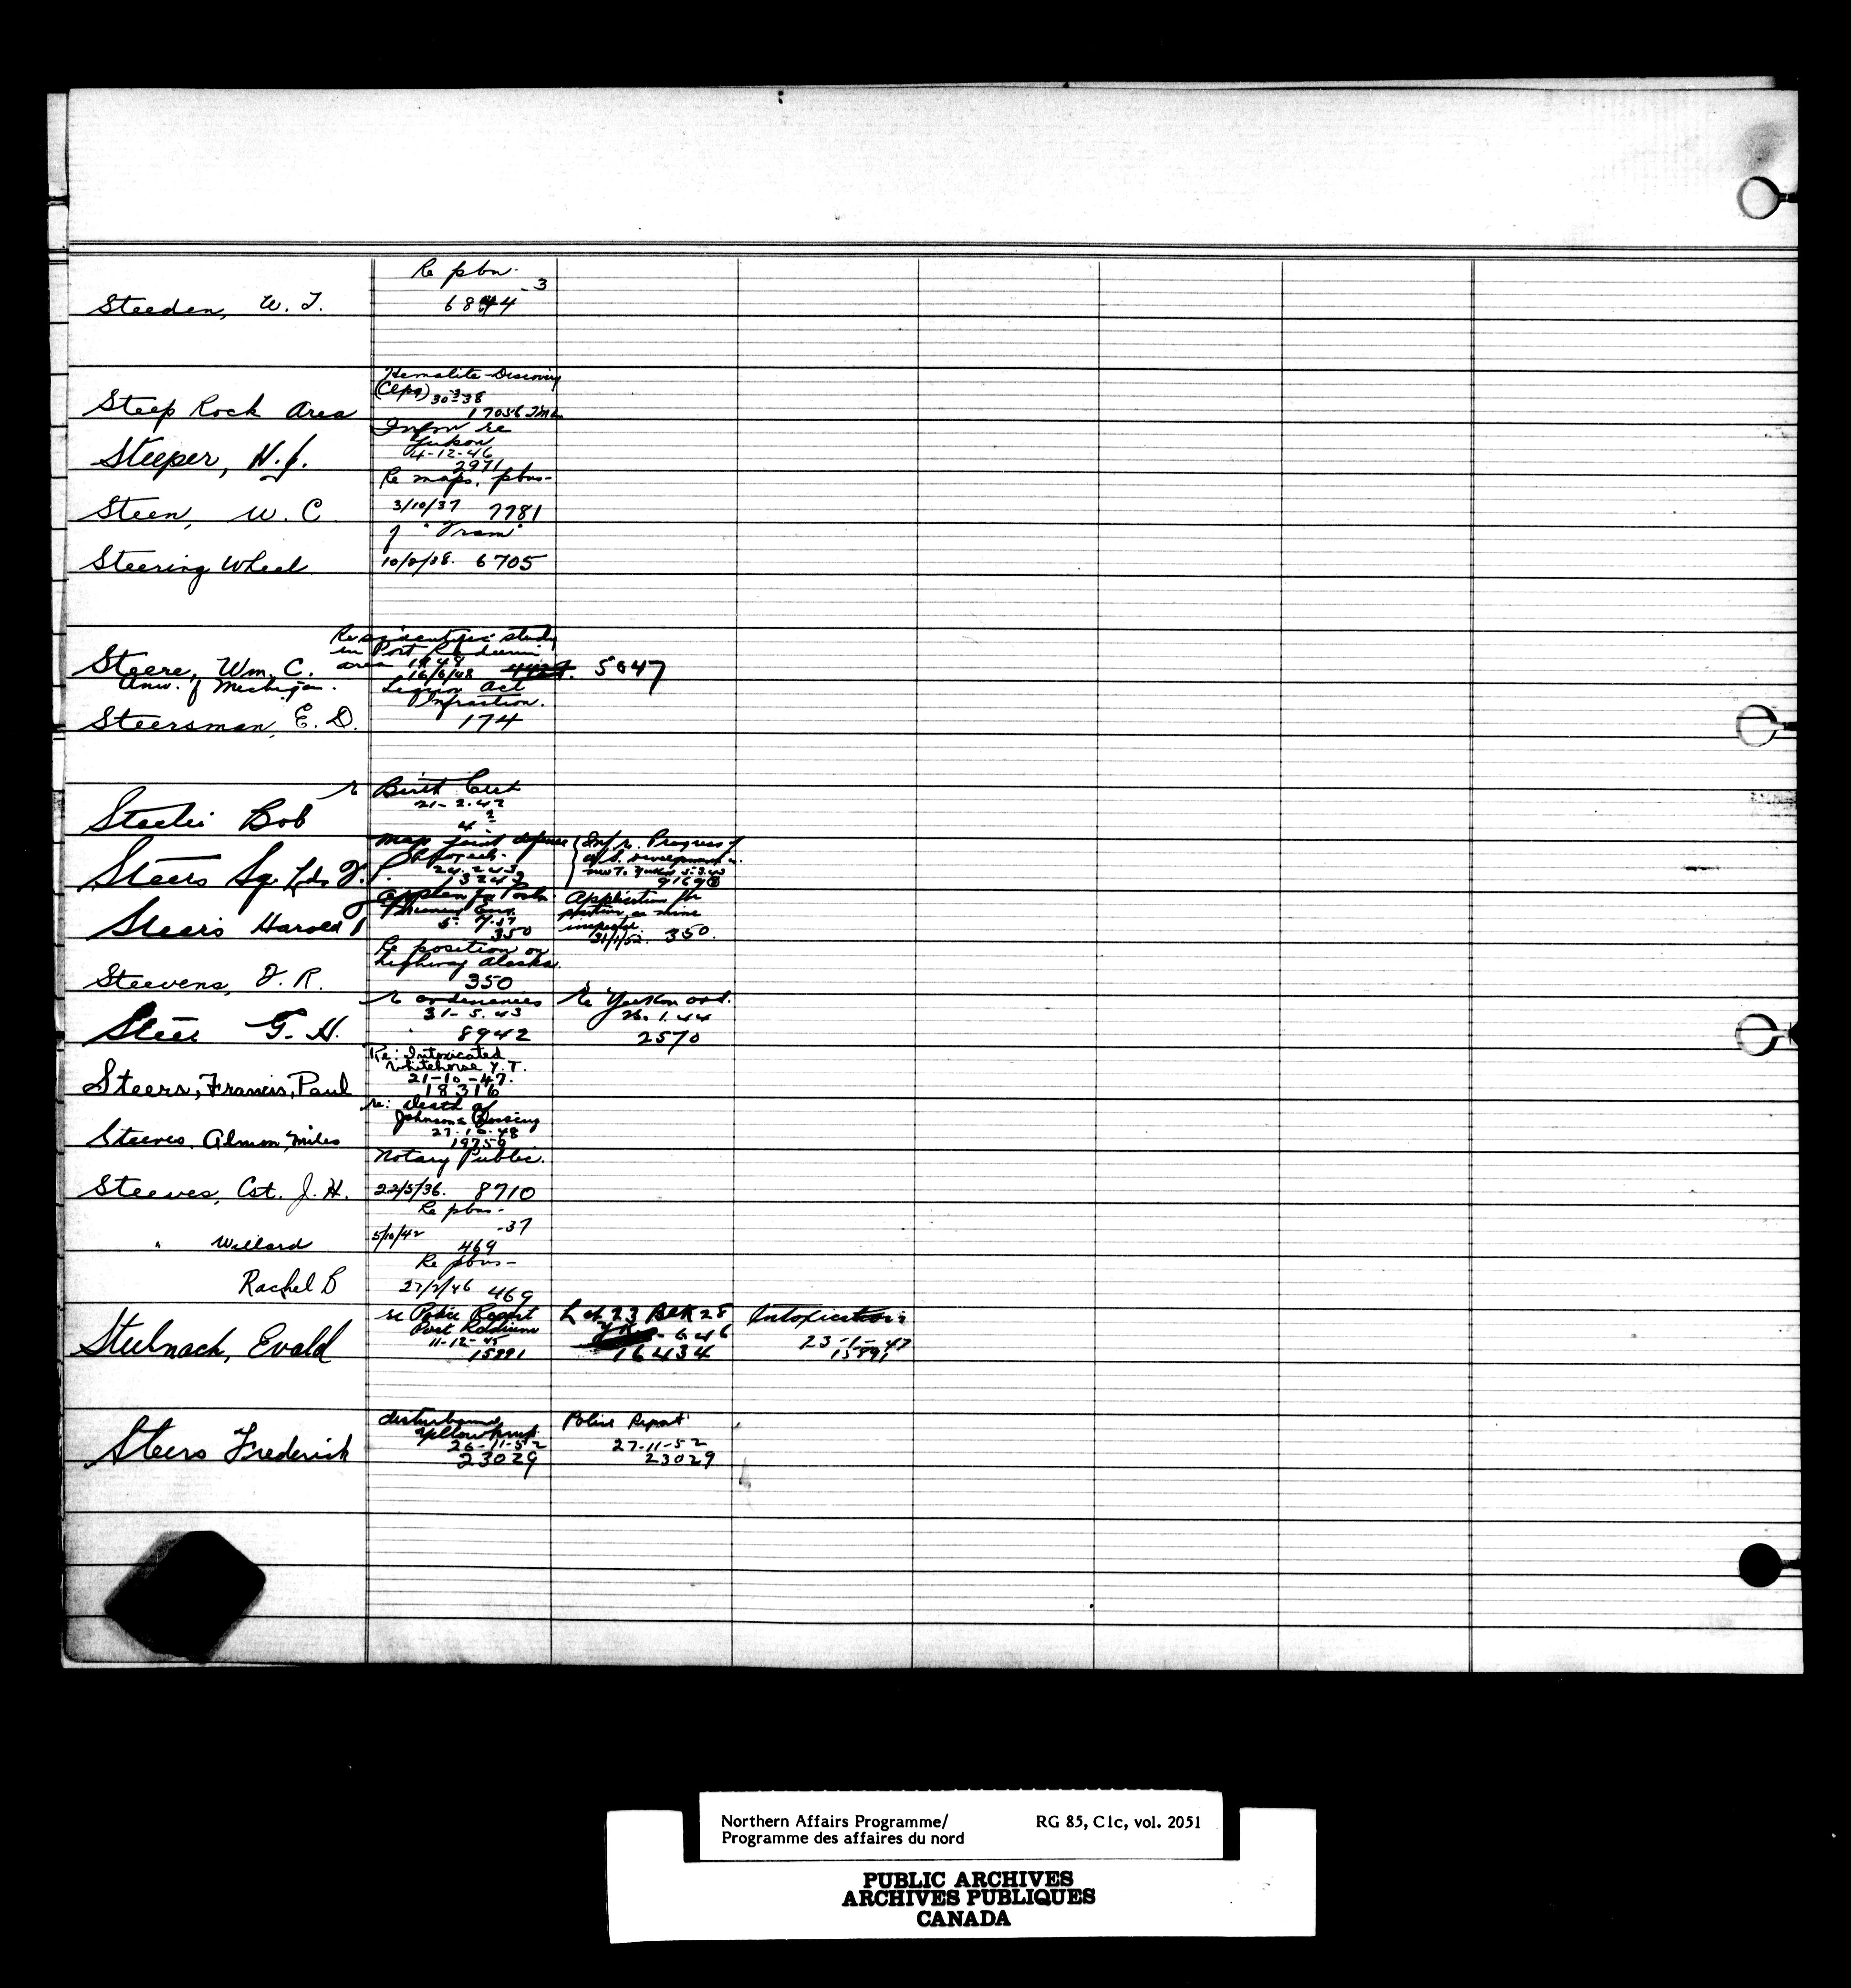 Re pbn.
-3
Steeden, W. T.
6844
Hematite Discovery
(Clpg) 30-3-38
Steep Rock Area
17056
Infm re
Yukon
4-12-46
Steeper, H. J.
2971
Re maps, pbns-
Steen, W. C
3/10/37 7781
of "Fram"
Steering Wheel
6705
Re scientific study
in Port Radium
area 1948
Steere, Wm. C.
16/6/48
5047
Univ. of Michigan.
Liquor Act
Infraction.
Steersman, E. D.
174
r Birth Cert
21-2-42
Bob
4
Map joint defense
Inf r. Progress of
Steers Sq. Ldr
24.2.43
Application for
position as mine
inspector
Steers Harold
350
31/1/52. 350.
Re position on
highway Alaska.
Steevens, F. R.
350
r ordinances
Re Yukon ord.
31-5.43
26.1.44
Steer G. H.
8942
2570
Re: Intoxicated
Whitehorse Y. T.
21-10-47.
Steers, Francis, Paul
18316
re: death of
Johnsons Crossing
27.10.48
Steeves, Almon, Miles
19759
Notary Public.
Steeves, Cst. J. H.
22/5/36. 8710
Re pbns-
5/10/42 -37
" Willard
469
Re pbns-
Rachel B
27/2/46 469
re Police Report
Lot 23 Blk 28
Intoxication
Port Radium
- 646
11-12-45
23-1-47
Evald
15891
16434
15891
disturbance
Police Report
Yellowknife
26-11-52
27-11-52
Steers Frederick
23029
23029
Northern Affairs Programme/
RG 85, C1c, vol. 2051
Programme des affaires du nord
PUBLIC ARCHIVES
ARCHIVES PUBLIQUES
CANADA